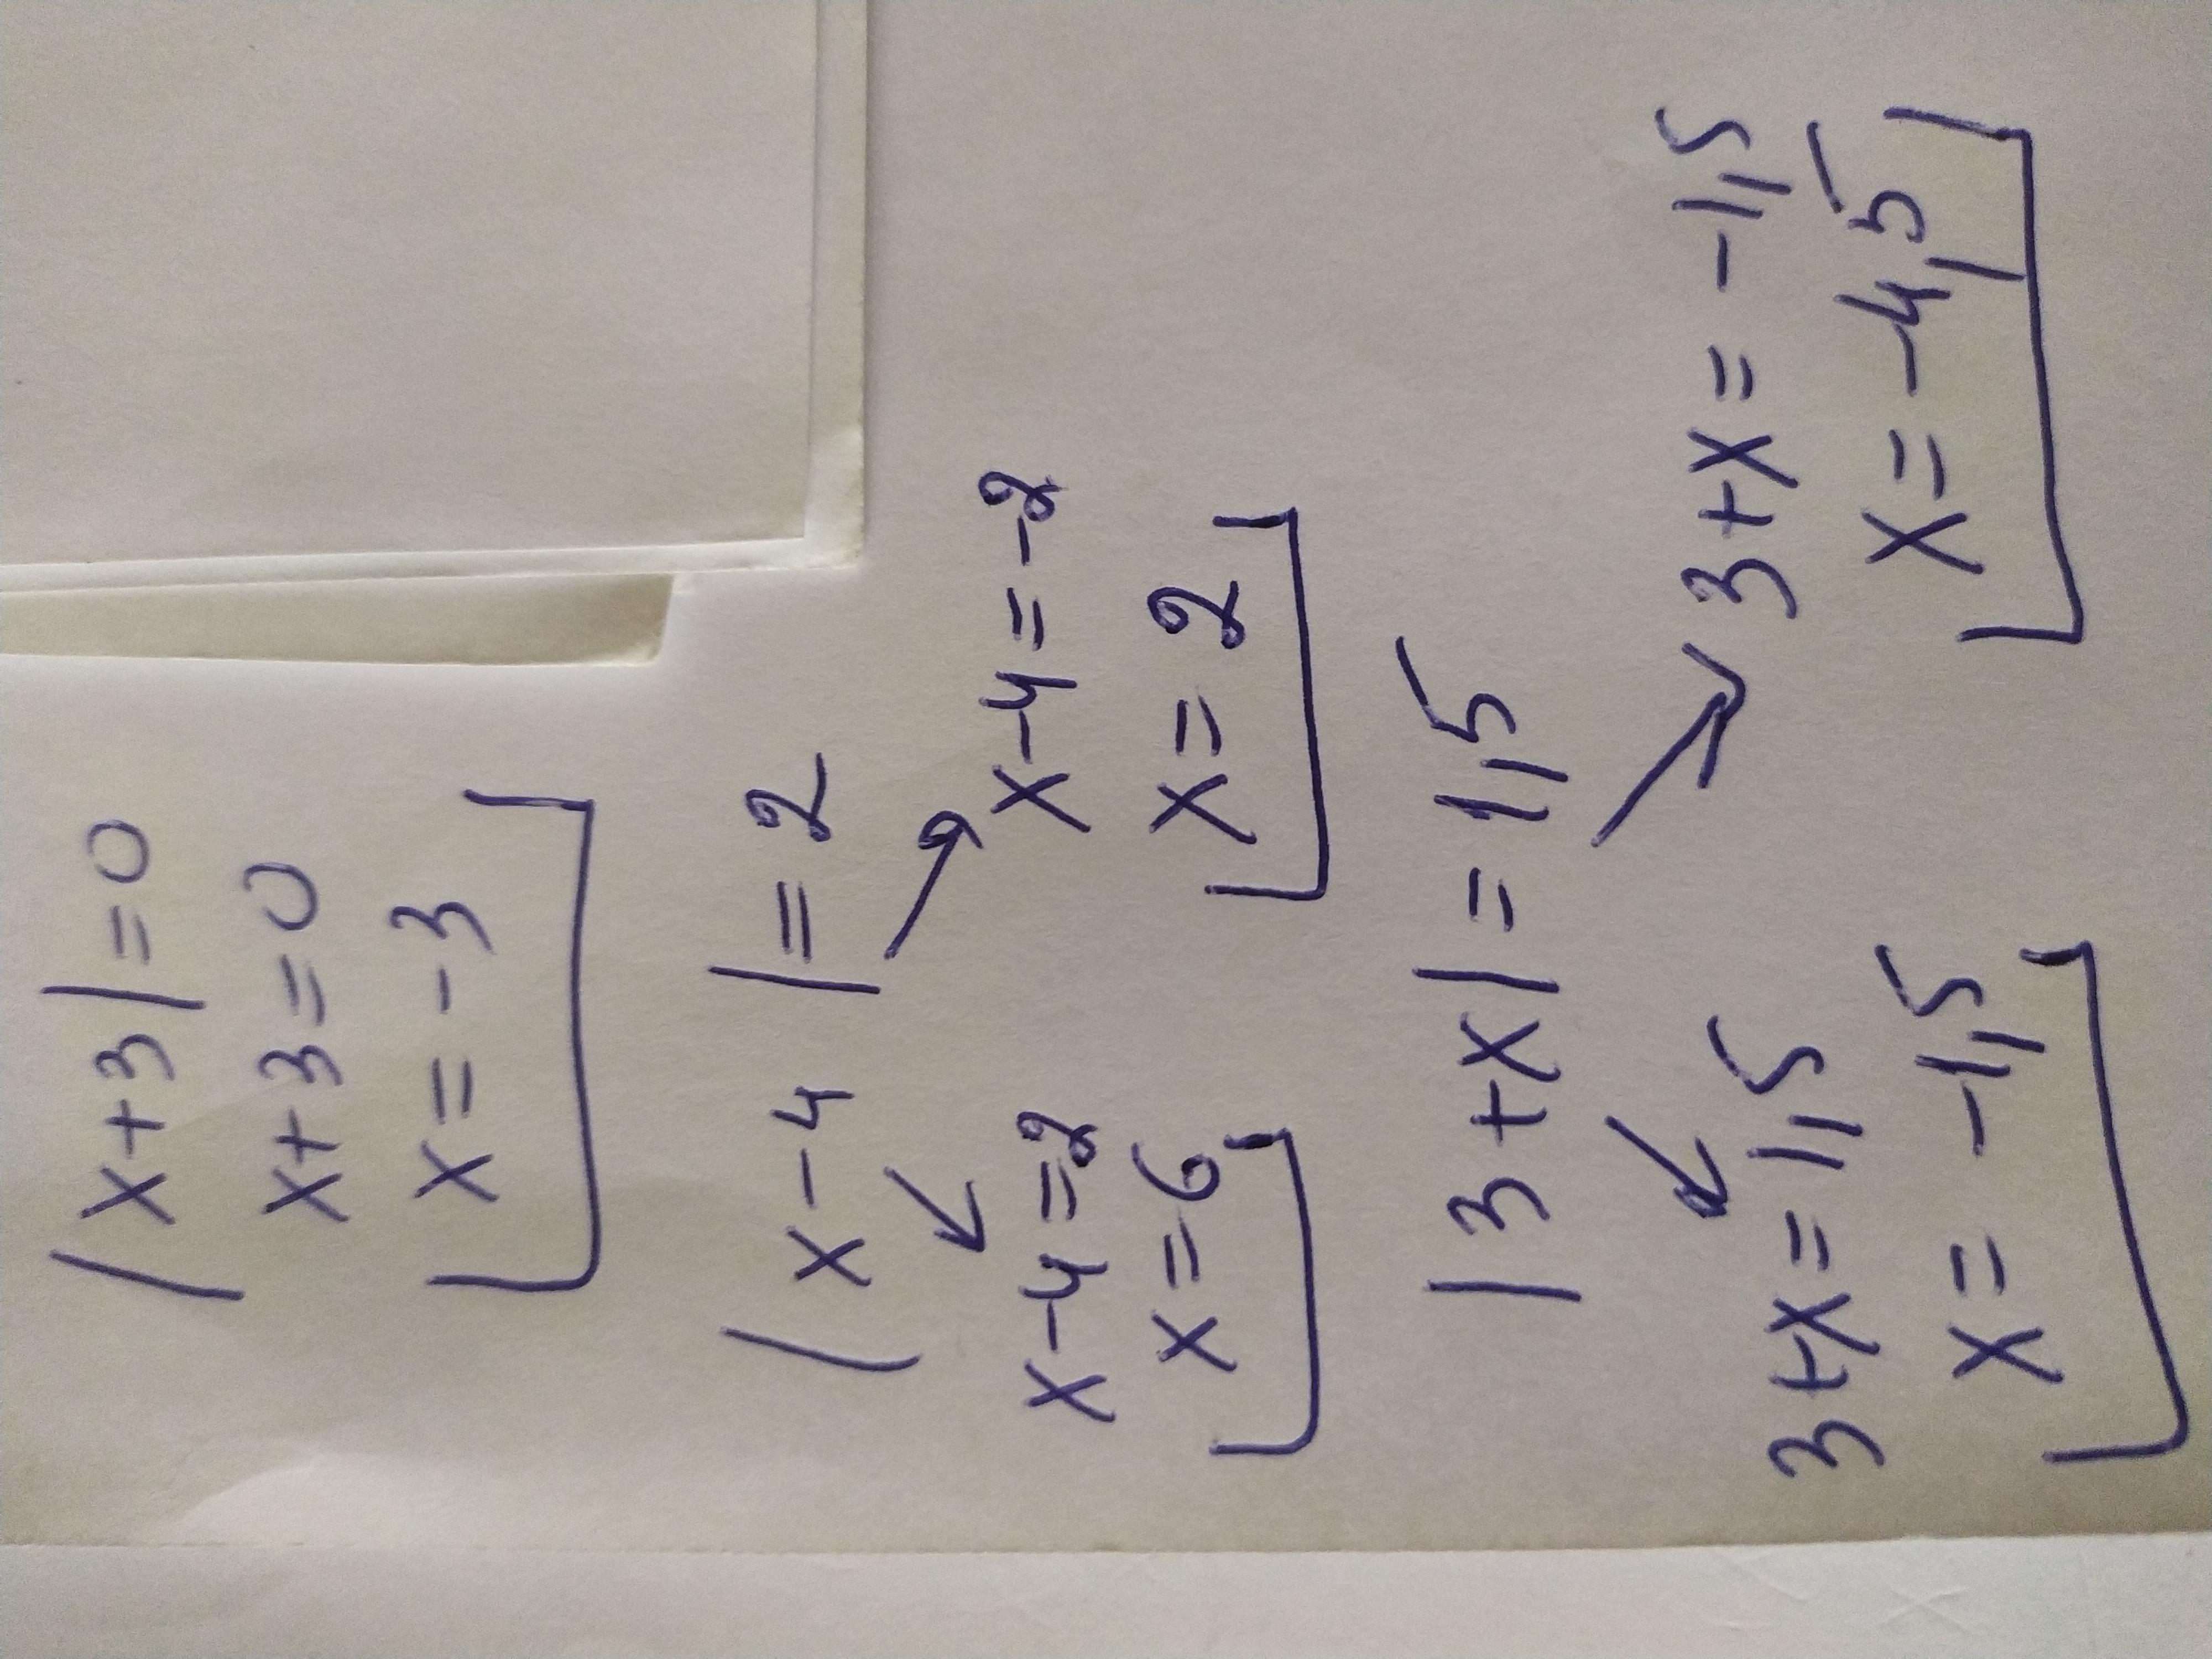 |x+3|=0
x+3=0
x=-3
|x-4|=2
x-4=2 x-4=-2
x=6 x=2
|3+x|=1,5
3+x=1,5 3+x=-1,5
x=-1,5 x=-4,5